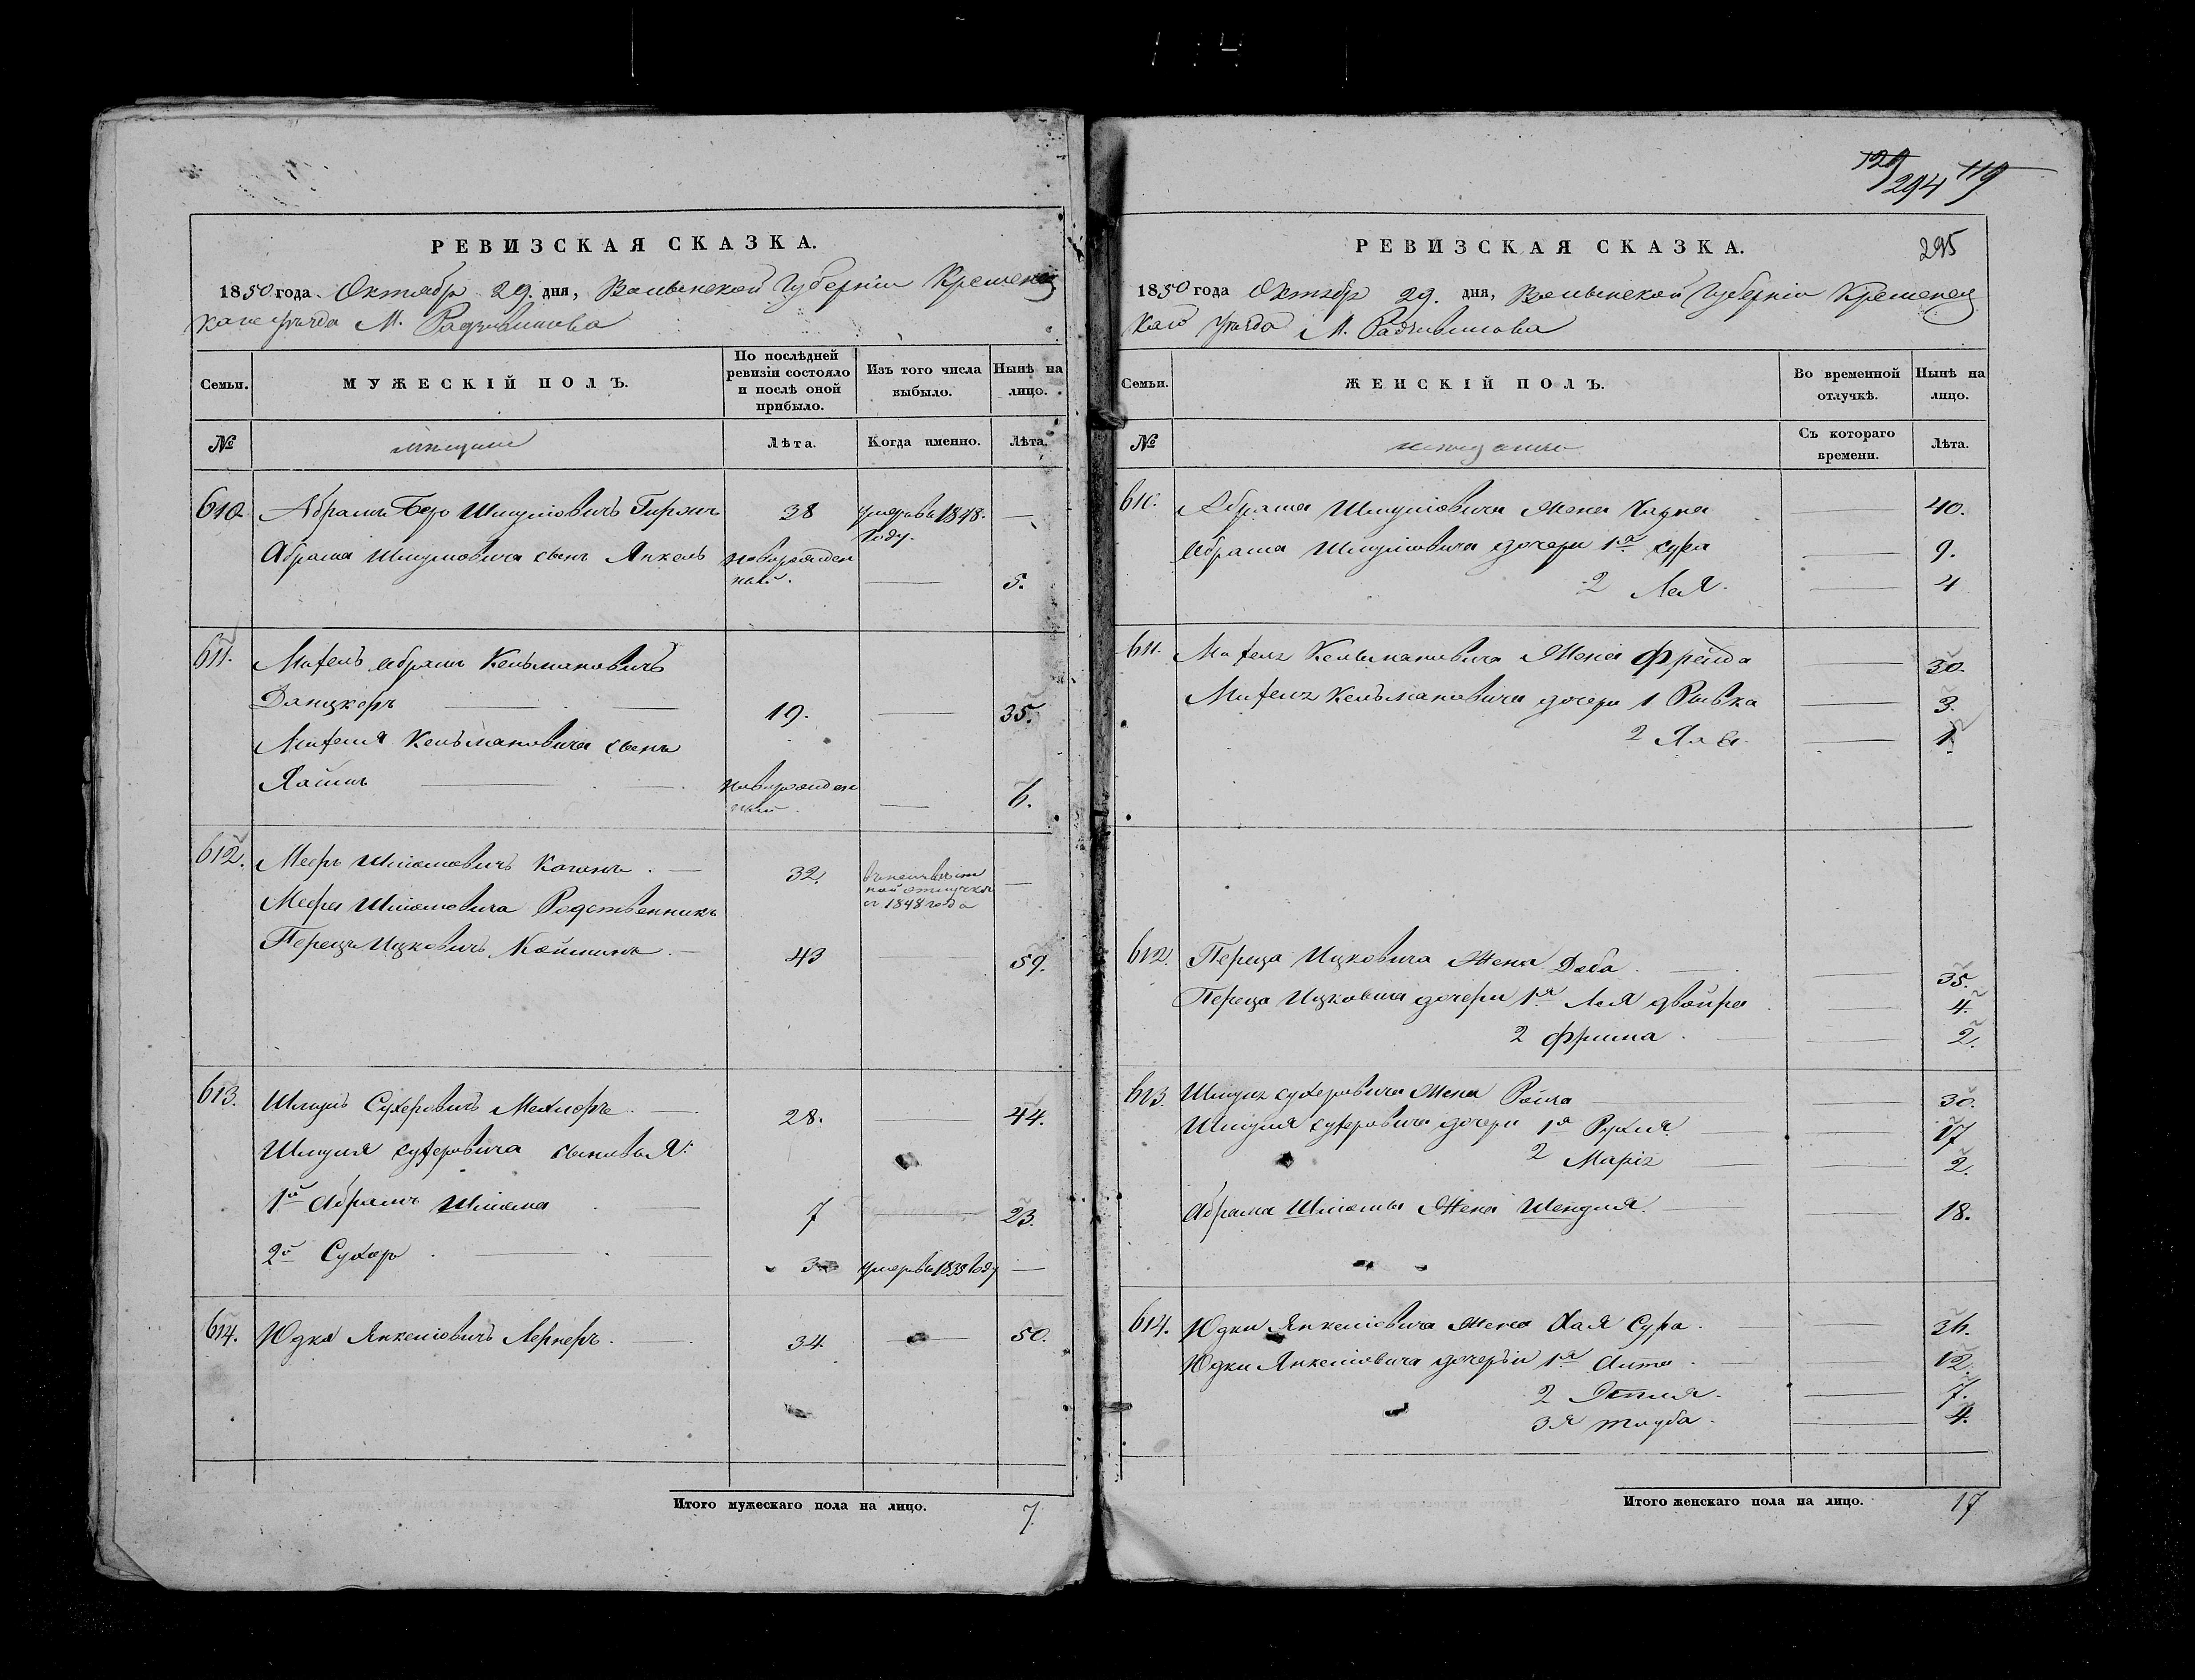 РЕВИЗСКАЯ СКАЗКА.
1850 года Октябр 29. дня, Волынской Губернiи Кременец
каго уѣзда М. Радзивилова
Семьи.
МУЖЕСКIЙ ПОЛЪ.
По послѣдней ревизiи состояло и послѣ оной прибыло.
Изъ того числа выбыло.
Нынѣ на лицо.
№
мѣщане
Лѣта.
Когда именно.
Лѣта.
610. Абрамъ Беръ Шмулiовичъ 28 умеръ въ 1848. — году.
Абрама Шмулiовича сынъ Янкель новорожденный. — 5.
611. Мотель Абрамъ Кельмановичъ
Данцкеръ — 19. — 35.
Мотеля Кельмановича сынъ
Хаимъ — новорожденный — 6.
612. Мееръ Шлiомовичъ Коганъ. — 32. въ неизвѣстной отлучкѣ съ 1848 года —
Меера Шлiомовича Родственникъ
Перецъ Ицковичъ Койтманъ. — 43 — 59.
613. Шмуль Сухеровичъ — 28. — 44.
Шмуля Сухеровича сыновья:
1й Абрамъ Шлiома — 7 — 23.
2й Сухеръ. — 3 умеръ въ 1838 году —
614. Юдка Янкелiовичъ Лернеръ. — 34. — 50.
Итого мужескаго пола на лицо. 7.
129/294 119
РЕВИЗСКАЯ СКАЗКА.
295
1850 года Октябр 29. дня, Волынской Губернiи Кременец
каго уѣзда М. Радзивилова
Семьи.
ЖЕНСКIЙ ПОЛЪ.
Во временной отлучкѣ.
Нынѣ на лицо.
№
Съ котораго времени.
Лѣта.
610. Абрама Шмулiовича Жена Хаука — 40.
Абрама Шмулiовича дочери 1я Сура — 9.
2 Лея. — 4
611. Мотеля Кельмановича Жена Фрейда — 30.
Мотеля Кельмановича дочери 1 Рывка — 3.
2 — 1.
612. Переца Ицковича Жена Доба. — 35.
Переца Ицковича дочери 1я Лея Двойра — 4.
2 Фрима. — 2.
613. Шмуля Сухеровича Жена Ройза — 30.
Шмуля Сухеровича дочери 1я Рухля — 17
2 Марiя — 2.
Абрама Шлiомы Жена Шендля. — 18.
614. Юдки Янкелiовича Жена Хая Сура. — 36.
Юдки Янкелiовича дочерьи 1я — 12.
2 — 7.
3я Тауба. — 4.
Итого женскаго пола на лицо. 17